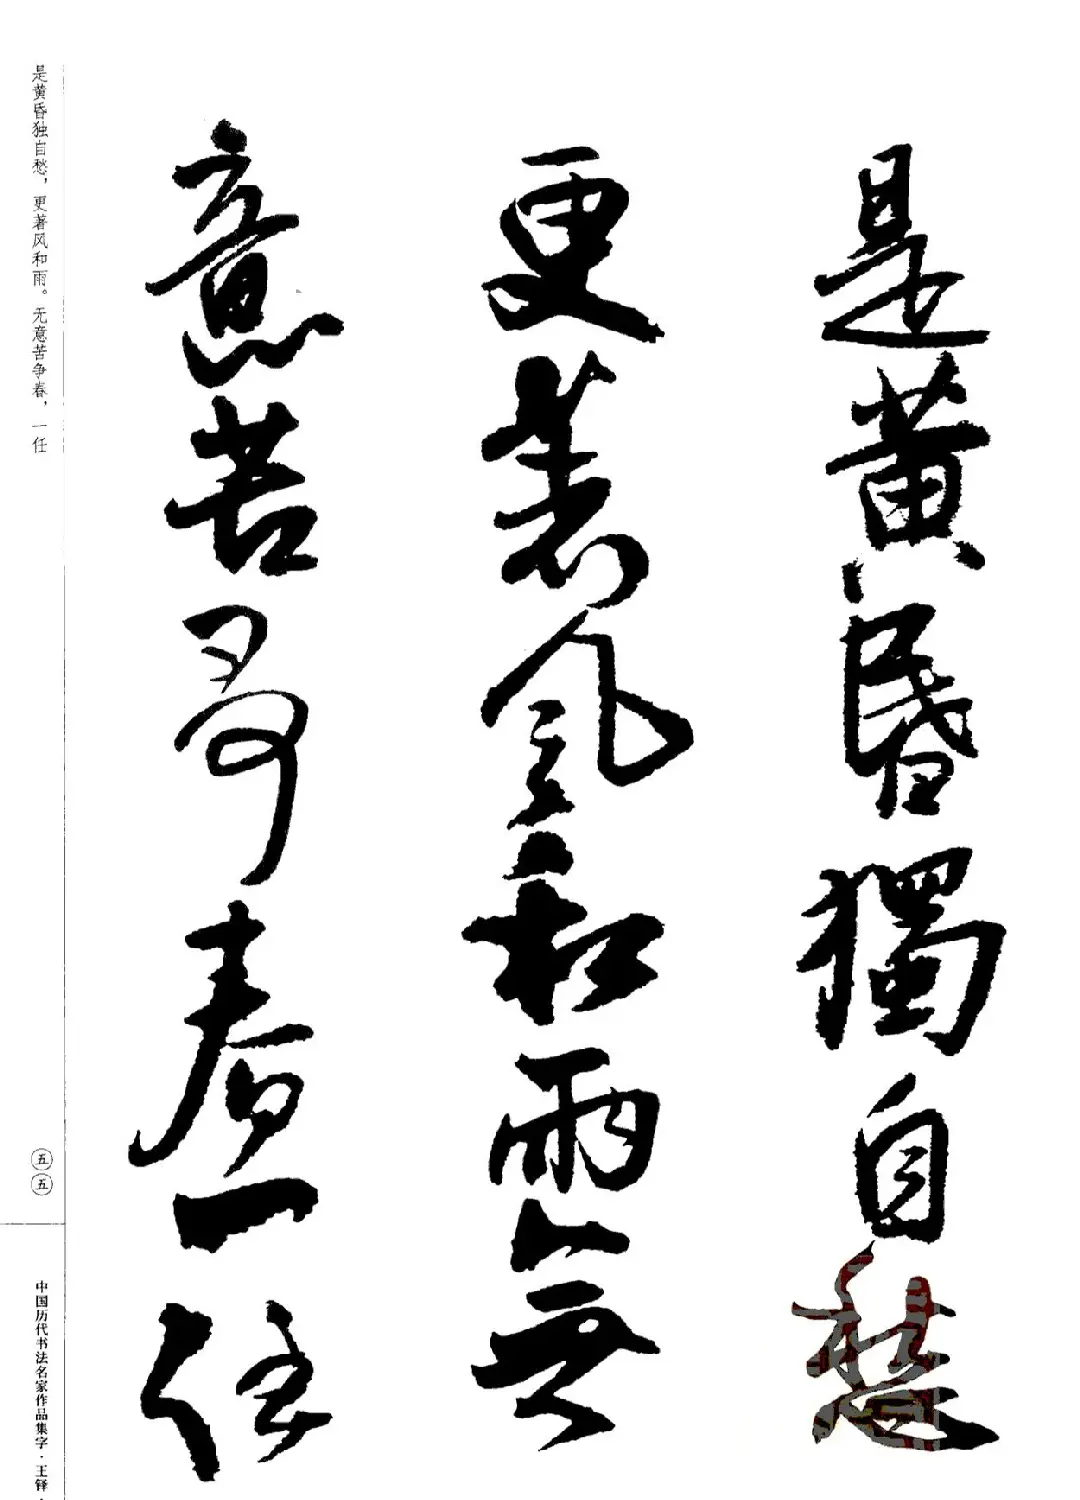 是黄昏獨自愁
更著風和雨無
意苦爭春一任
是黄昏独自愁，更著风和雨。无意苦争春，一任
五五
中国历代书法名家作品集字·王铎·